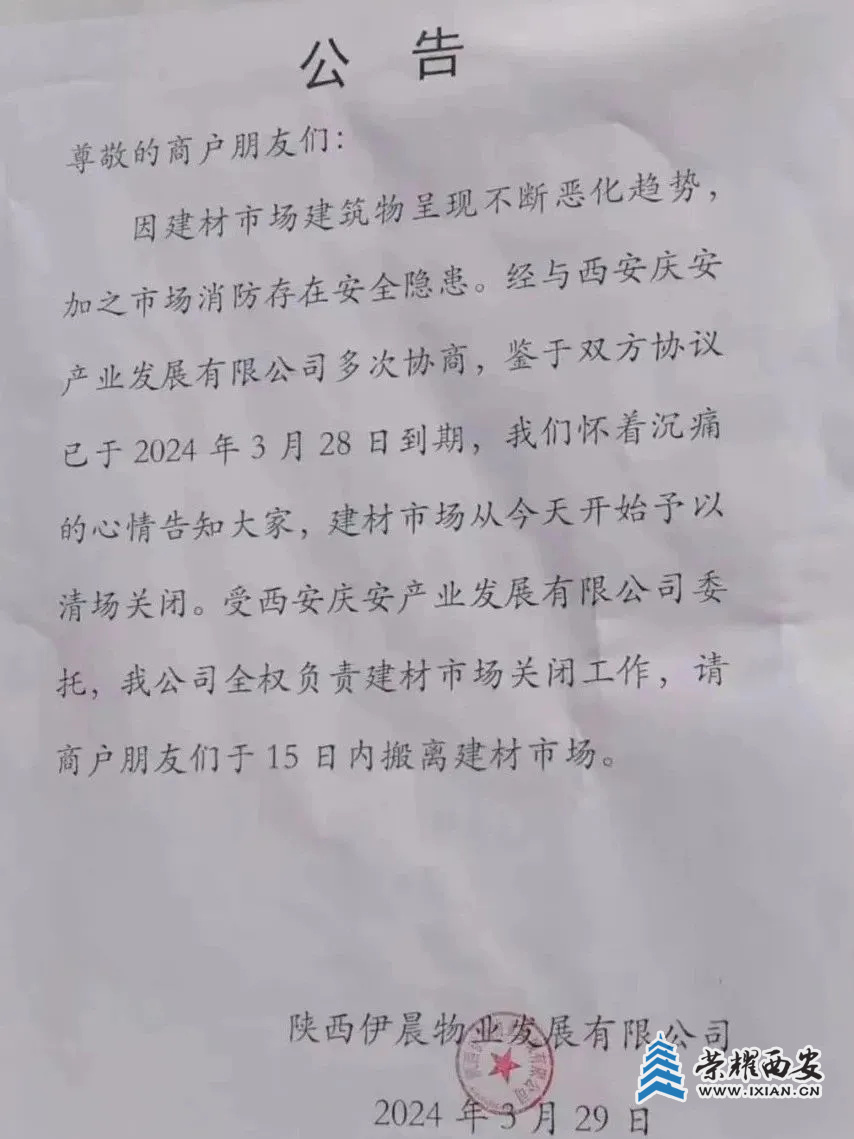 公 告
尊敬的商户朋友们：
因建材市场建筑物呈现不断恶化趋势，
加之市场消防存在安全隐患。经与西安庆安
产业发展有限公司多次协商，鉴于双方协议
已于 2024 年 3 月 28 日到期，我们怀着沉痛
的心情告知大家，建材市场从今天开始予以
清场关闭。受西安庆安产业发展有限公司委
托，我公司全权负责建材市场关闭工作，请
商户朋友们于 15 日内搬离建材市场。
陕西伊晨物业发展有限公司
2024 年 3 月 29 日
荣耀西安
WWW.IXIAN.CN